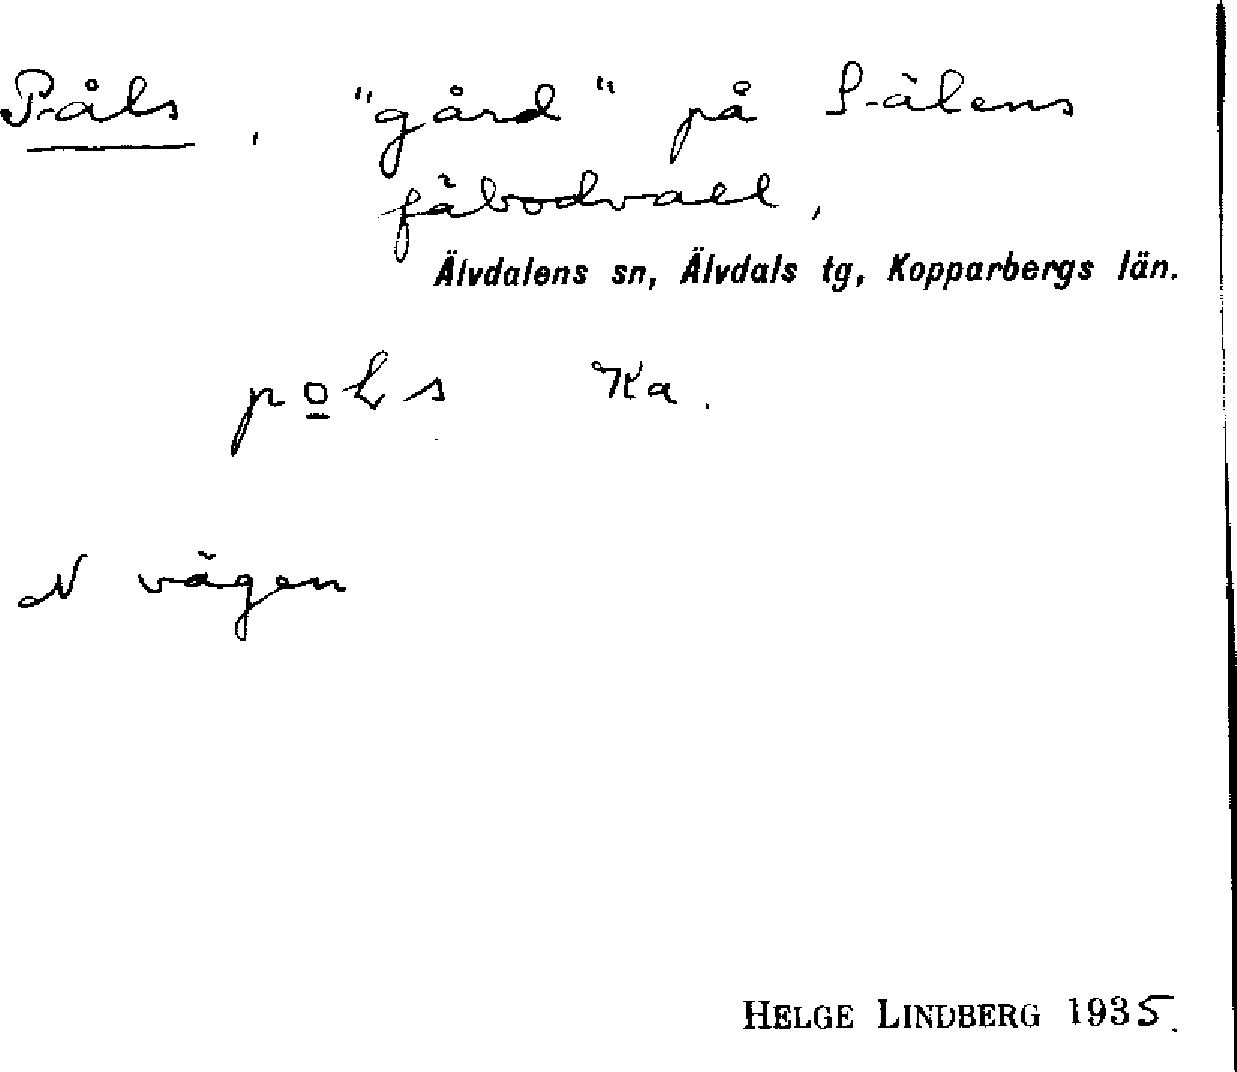 Påls, "gård" på Sälens
fäbodvall,
Älvdalens sn, Älvdals tg, Kopparbergs län.
Ka.
N vägen
HELGE LINDBERG 1935.